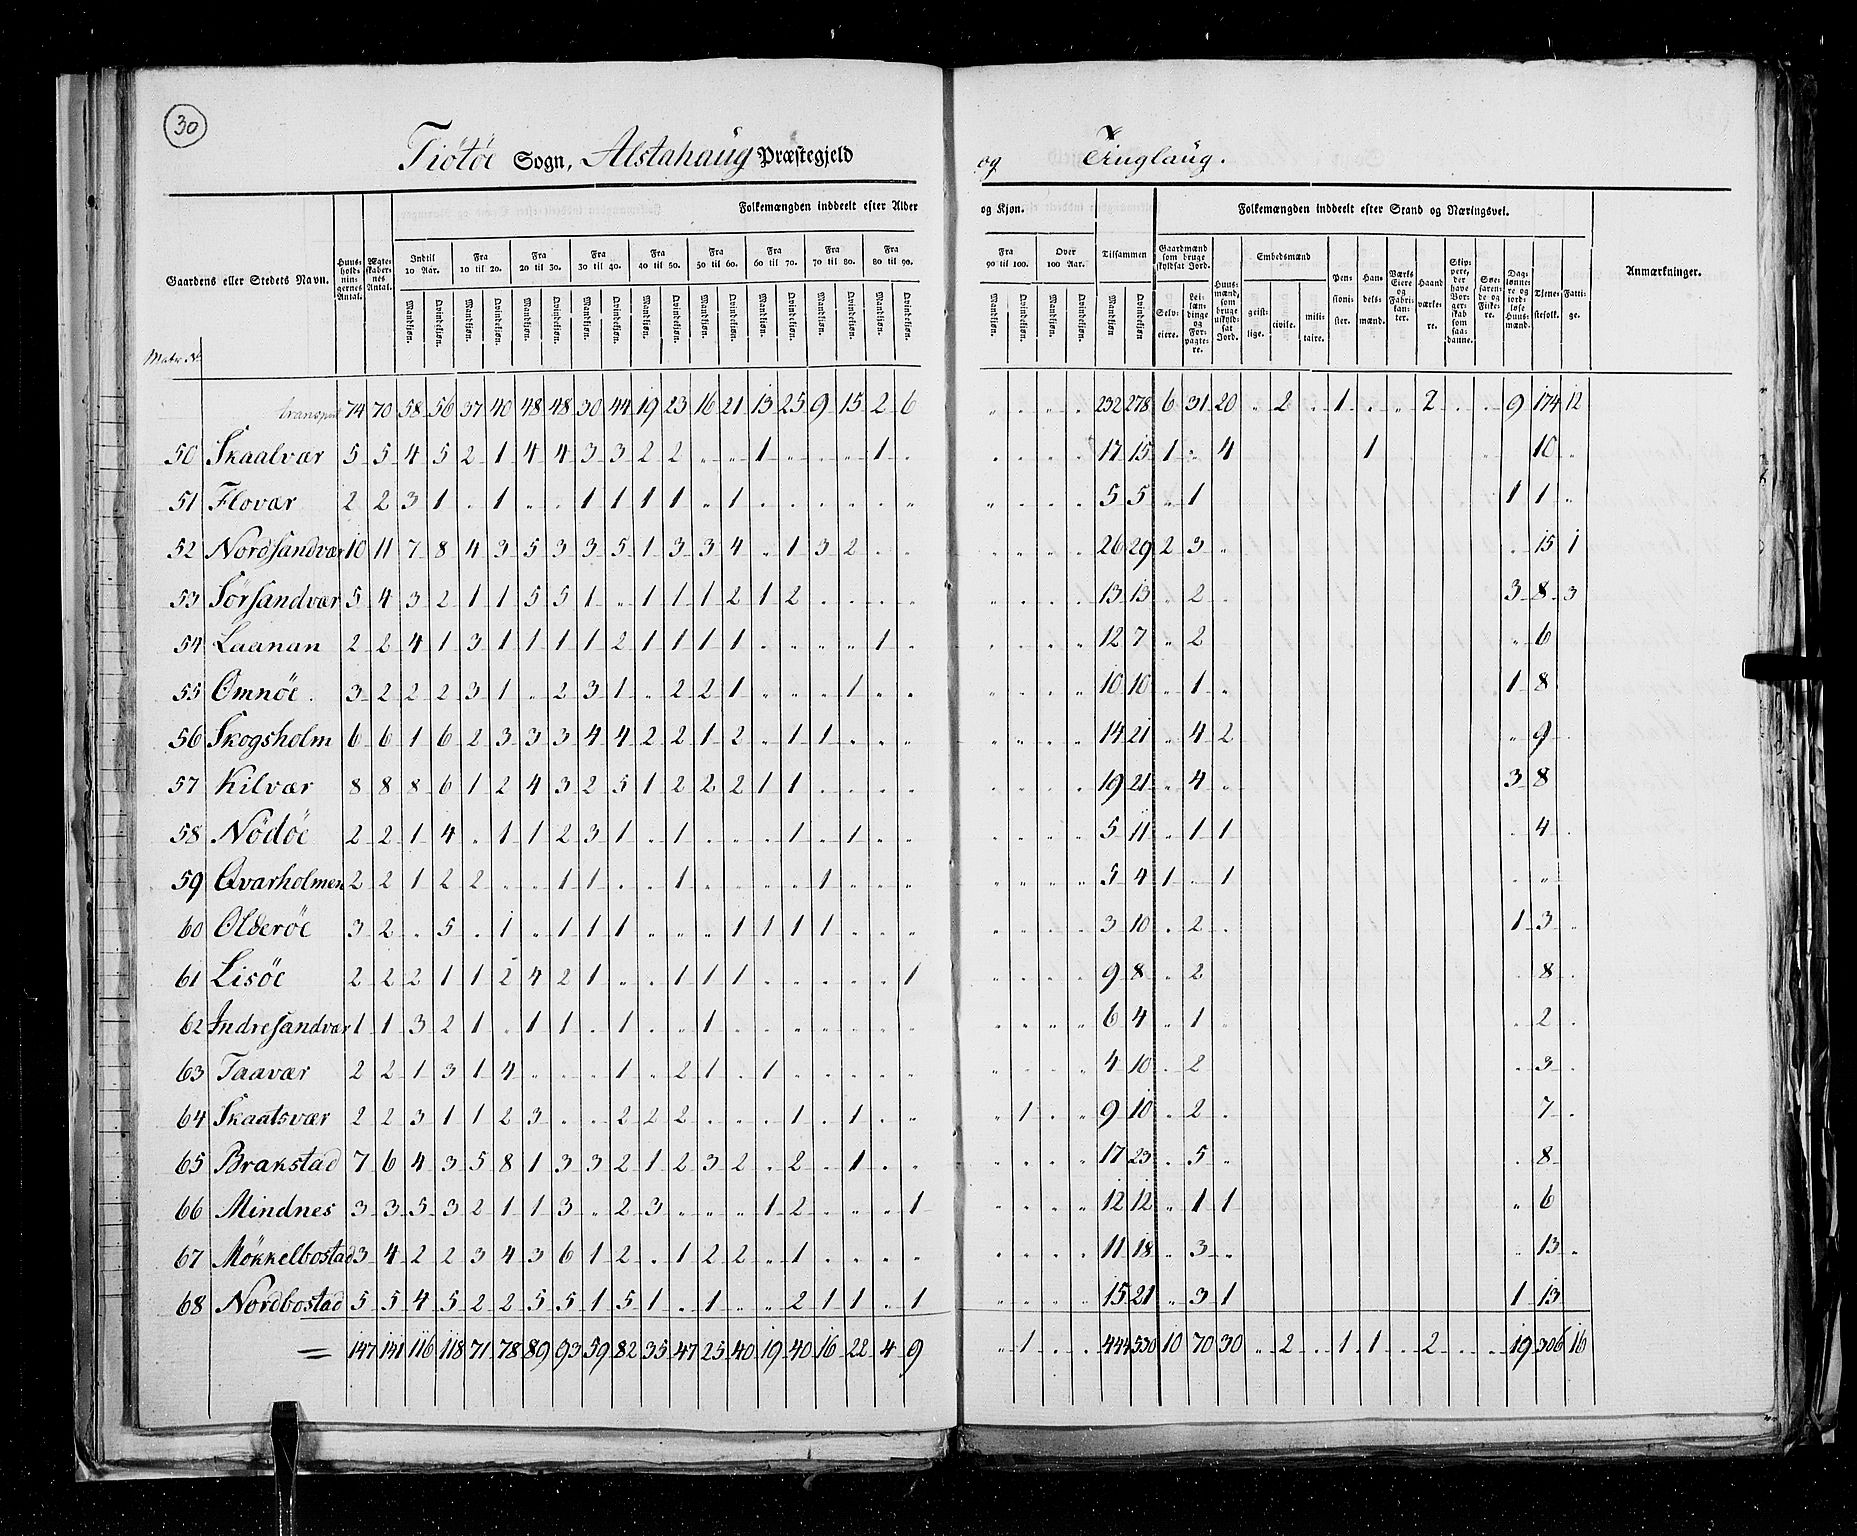 30
Tiötöe Sogn, Alstahaug Præstegjeld og Tinglaug.
Gaardens eller Stedets Navn. Huus-hold-nin-gernes Antal. Ægte-skaber-nes Antal. Folkemængden inddeelt efter Alder og Kjøn. Tilsammen Folkemængden inddeelt efter Stand og Næringsvei. Anmærkninger.
Indtil 10 Aar. Fra 10 til 20. Fra 20 til 30. Fra 30 til 40. Fra 40 til 50. Fra 50 til 60. Fra 60 til 70. Fra 70 til 80. Fra 80 til 90. Fra 90 til 100. Over 100 Aar.
Gaardmænd som bruge skyldsat Jord. Selv-eiere. Lei-lændinge og For-pagte-re. Huus-mænd, som bruge uskyld-sat Jord. Embedsmænd geist-lige. civile. mili-taire. Pen-sioni-ster. Han-dels-mænd. Værks Eiere og Fabri-kan-ter. Haand-værke-re. Skip-pere, der have Bor-ger-skab som saa-danne. Søe-faren-de og Fiske-re. Dag-lønne-re og jord-løse Huus-mænd. Tjene-stefolk. Fatti-ge.
Mandkjøn. Qvindekjøn.
Matr. Nr.
transport 74 70 58 56 37 40 48 48 30 44 19 23 16 21 13 25 9 15 2 6 232 278 6 31 20 2 1 2 9 174 12
50 Skaalvær 5 5 4 5 2 1 4 4 3 3 2 2 1 1 17 15 1 4 1 10
51 Flovær 2 2 3 1 1 1 1 1 1 1 5 5 1 1 1
52 Nordsandvær 10 11 7 8 4 3 5 3 3 5 1 3 3 4 1 3 2 26 29 2 3 15 1
53 Sørsandvær 5 4 3 2 1 1 5 5 1 1 1 1 2 1 2 13 13 2 3 8 3
54 Laanan 2 2 4 1 3 1 1 1 1 2 1 1 1 1 1 12 7 2 6
55 Omnöe 3 2 2 2 3 1 2 3 1 2 2 1 1 10 10 1 1 8
56 Skogsholm 6 6 1 6 2 3 3 3 4 4 2 2 1 2 1 1 14 21 4 2 9
57 Kilvær 8 8 8 6 1 2 4 3 2 5 1 2 2 2 1 1 19 21 4 3 8
58 Nödöe 2 2 1 4 1 1 2 3 1 1 1 1 5 11 1 1 4
59 Qvarholmen 2 2 1 2 2 1 1 1 1 5 4 1 1
60 Olderöe 3 2 5 1 1 1 1 1 1 1 1 3 10 2 1 3
61 Lisöe 2 2 2 1 1 2 4 2 1 1 1 1 1 9 8 2 8
62 Indresandvær 1 1 3 2 1 1 1 1 1 6 4 1 2
63 Taavær 2 2 1 3 1 4 1 2 1 1 4 10 2 3
64 Skaatsvær 2 2 3 1 1 2 3 2 2 2 1 1 1 9 10 2 7
65 Brakstad 7 6 4 3 5 8 1 3 3 2 1 2 3 2 2 1 17 23 5 8
66 Mindnes 3 3 5 3 2 1 1 3 2 3 1 2 1 12 12 1 1 6
67 Møkkelbostad 3 4 2 2 3 4 3 6 1 2 1 2 2 1 11 18 3 13
68 Nordbostad 5 5 4 5 2 2 5 5 1 5 1 1 2 1 1 1 15 21 3 1 1 13
= 147 141 116 118 71 78 89 93 59 82 35 47 25 40 19 40 16 22 4 9 1 444 530 10 70 30 2 1 1 2 19 306 16